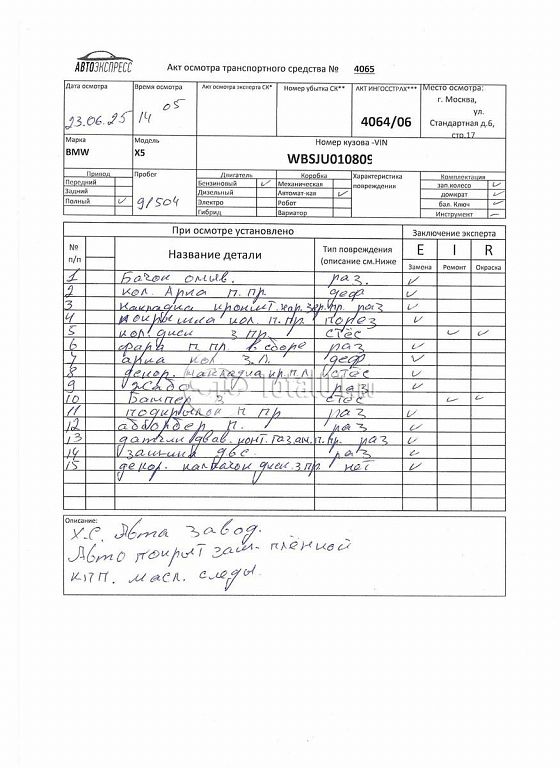 АВТОЭКСПРЕСС
Акт осмотра транспортного средства № 4065
Дата осмотра
23.06.25
Время осмотра
14 05
Акт осмотра эксперта СК*
Номер убытка СК**
АКТ ИНГОССТРАХ***
4064/06
Место осмотра:
г. Москва,
ул.
Стандартная д.6,
стр.17
Марка
BMW
Модель
X5
Номер кузова -VIN
WBSJU010809
Привод
Передний
Задний
Полный ✓
Пробег
91504
Двигатель
Бензиновый ✓
Дизельный
Электро
Гибрид
Коробка
Механическая
Автомат-кая ✓
Робот
Вариатор
Характеристика
повреждения
Комплектация
зап.колесо ✓
домкрат ✓
бал. Ключ ✓
Инструмент –
При осмотре установлено
Заключение эксперта
№ п/п
Название детали
Тип повреждения
(описание см.Ниже
E I R
Замена Ремонт Окраска
1 Бачок омыв. раз. ✓
2 кол. Арка п. пр. деф ✓
3 накладка кроншт. пр. раз ✓
4 покрышка кол. п.пр. порез ✓
5 кол. диск з пр стёс ✓ ✓
6 фара п. пр. в сборе раз ✓
7 арка кол з.л. деф. ✓
8 декор. накладка кр.п.л стёс ✓
9 жабо раз ✓
10 Бампер з стёс ✓ ✓
11 подкрылок п пр раз ✓
12 абсорбер п. раз ✓
13 датчик давл. конт. п. пр. раз ✓
14 защита двс. раз ✓
15 декор. колпачок диск. з пр. нет ✓
Total01.ru
Описание:
Х.С. Авто завод.
Авто покрыт защ- плёнкой
КПП. масл. следы.